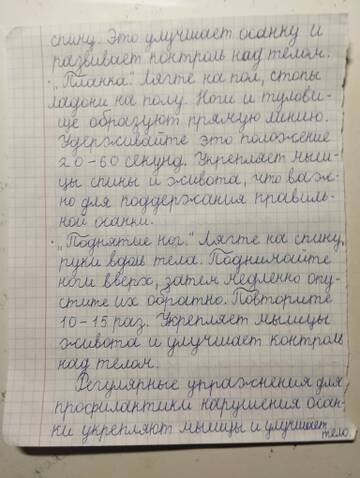 спину. Это улучшает осанку и
развивает контроль над телом.
· „Планка." Лягте на пол, стопы
ладони на полу. Ноги и тулови-
ще образуют прямую линию.
Удерживайте это положение
20-60 секунд. Укрепляет мыш-
цы спины и живота, что важ-
но для поддержания правиль-
ной осанки.
· „Поднятие ног." Лягте на спину,
руки вдоль тела. Поднимайте
ноги вверх, затем медленно опу-
стите их обратно. Повторите
10-15 раз. Укрепляет мышцы
живота и улучшает контроль
над телом.
Регулярные упражнения для
профилактики нарушения осан-
ки укрепляют мышцы и улучшает
тело.